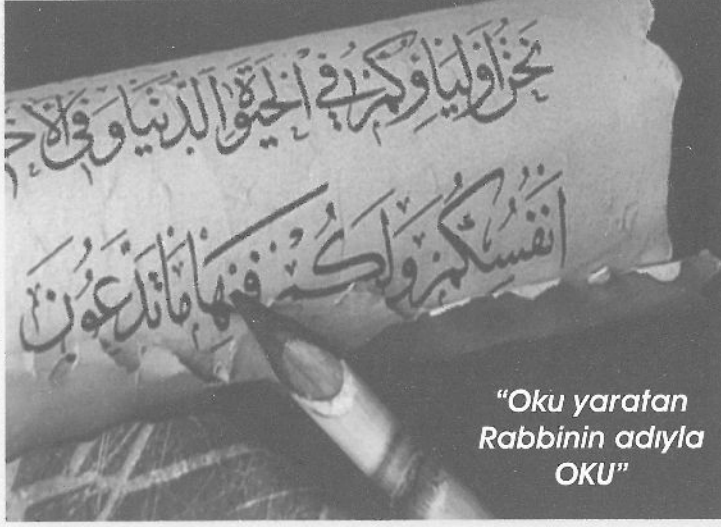 نَحْنُ اَوْلِيَاؤُكُمْ فِي الْحَيٰوةِ الدُّنْيَا وَفِي الْاٰخِ
اَنْفُسُكُمْ وَلَكُمْ فِيهَا مَا تَدَّعُونَ
“Oku yaratan
Rabbinin adıyla
OKU”